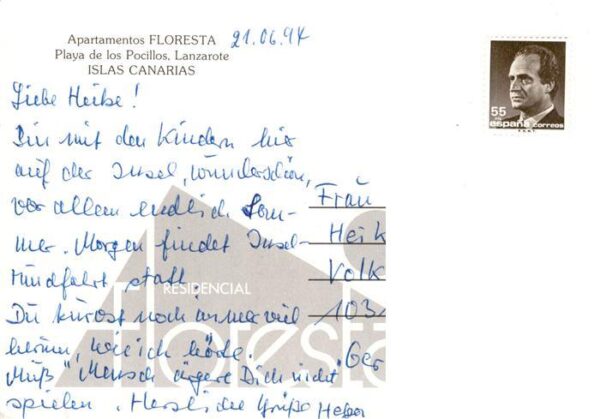 Apartamentos FLORESTA
Playa de los Pocillos, Lanzarote
ISLAS CANARIAS
21.06.94
55
españa correos
Liebe Heike!
Bin mit den Kindern hier
auf der Insel, wunderschön,
vor allem endlich Som-
mer. Morgen findet Insel-
rundfahrt statt.
Du kurvst noch immer viel
herum, wie ich hörte.
Muß "Mensch ärgere Dich nicht"
spielen. Herzliche Grüße
Frau
Heik
Volk
103
Ger
RESIDENCIAL
floresta